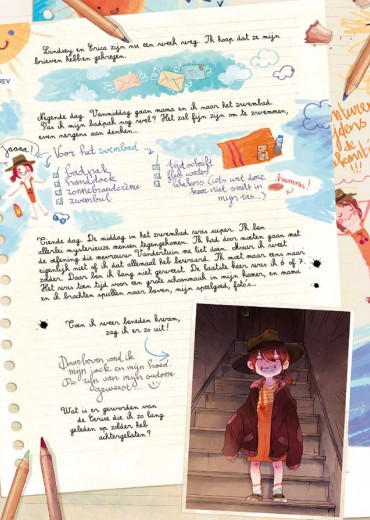 REV
Lindsey en Erica zijn nu een week weg. Ik hoop dat ze mijn
brieven hebben gekregen.
Negende dag. Vanmiddag gaan mama en ik naar het zwembad.
Pas ik mijn badpak nog wel? Het zal fijn zijn om te zwemmen,
even nergens aan denken...
Jaaaa!
Voor het zwembad
badpak
handdoek
zonnebrandcrème
zwembril
tijdschrift
fles water
hummm!
Tiende dag. De middag in het zwembad was super. Ik ben
allerlei mysterieuze mensen tegengekomen. Ik had door moeten gaan met
de oefening die mevrouw
eigenlijk niet of ik dat allemaal heb bewaard. Ik moet maar eens naar
zolder. Daar ben ik lang niet geweest. De laatste keer was ik 6 of 7.
Het was toen tijd voor een grote schoonmaak in mijn kamer, en mama
en ik brachten spullen naar boven, mijn speelgoed, foto's...
Toen ik weer beneden kwam,
zag ik er zo uit!
Daarboven vond ik
mijn jack en mijn hoed.
Die zijn van mijn
geweest...
Wat is er geworden van
de Cerise die ik zo lang
geleden op zolder heb
achtergelaten?